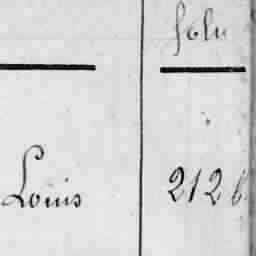 folio
Louis 212 b